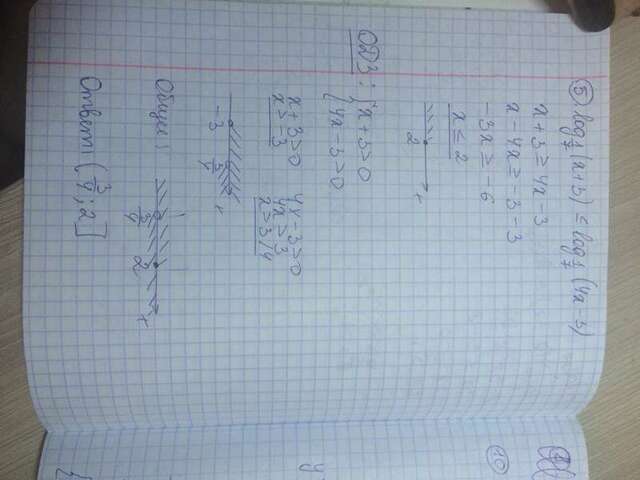 ⑤ log_{1/7}(x+3) ≤ log_{1/7}(4x-3)
x+3 ≥ 4x-3
x-4x ≥ -3-3
-3x ≥ -6
x ≤ 2
2 x
ОДЗ: { x+3>0
4x-3>0
x+3>0 4x-3>0
x>-3 4x>3
x>3/4
-3 3/4 x
Общее:
3/4 2 x
Ответ: (3/4; 2]
10